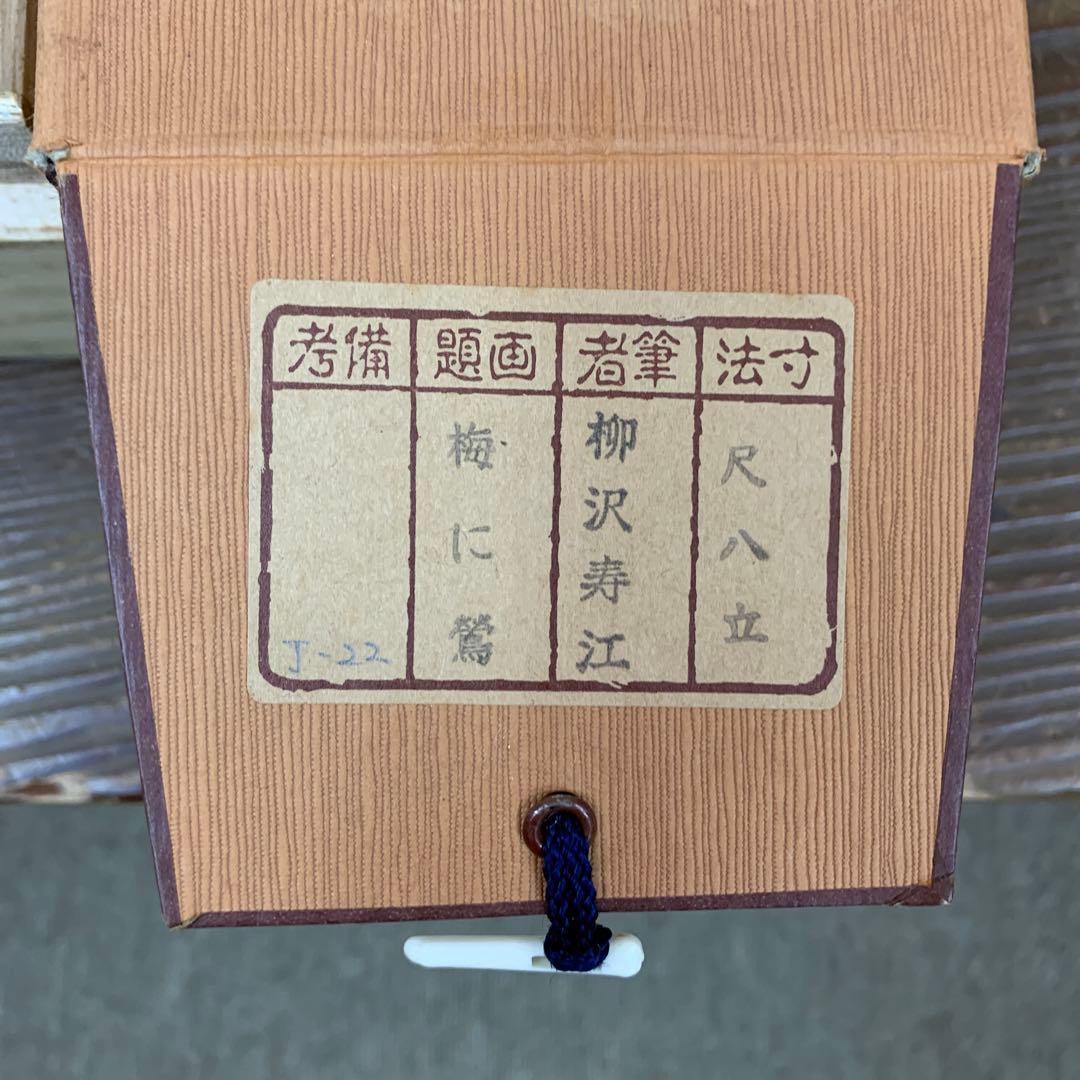 寸法
尺八立
筆者
柳沢寿江
画題
梅に鶯
備考
J-22